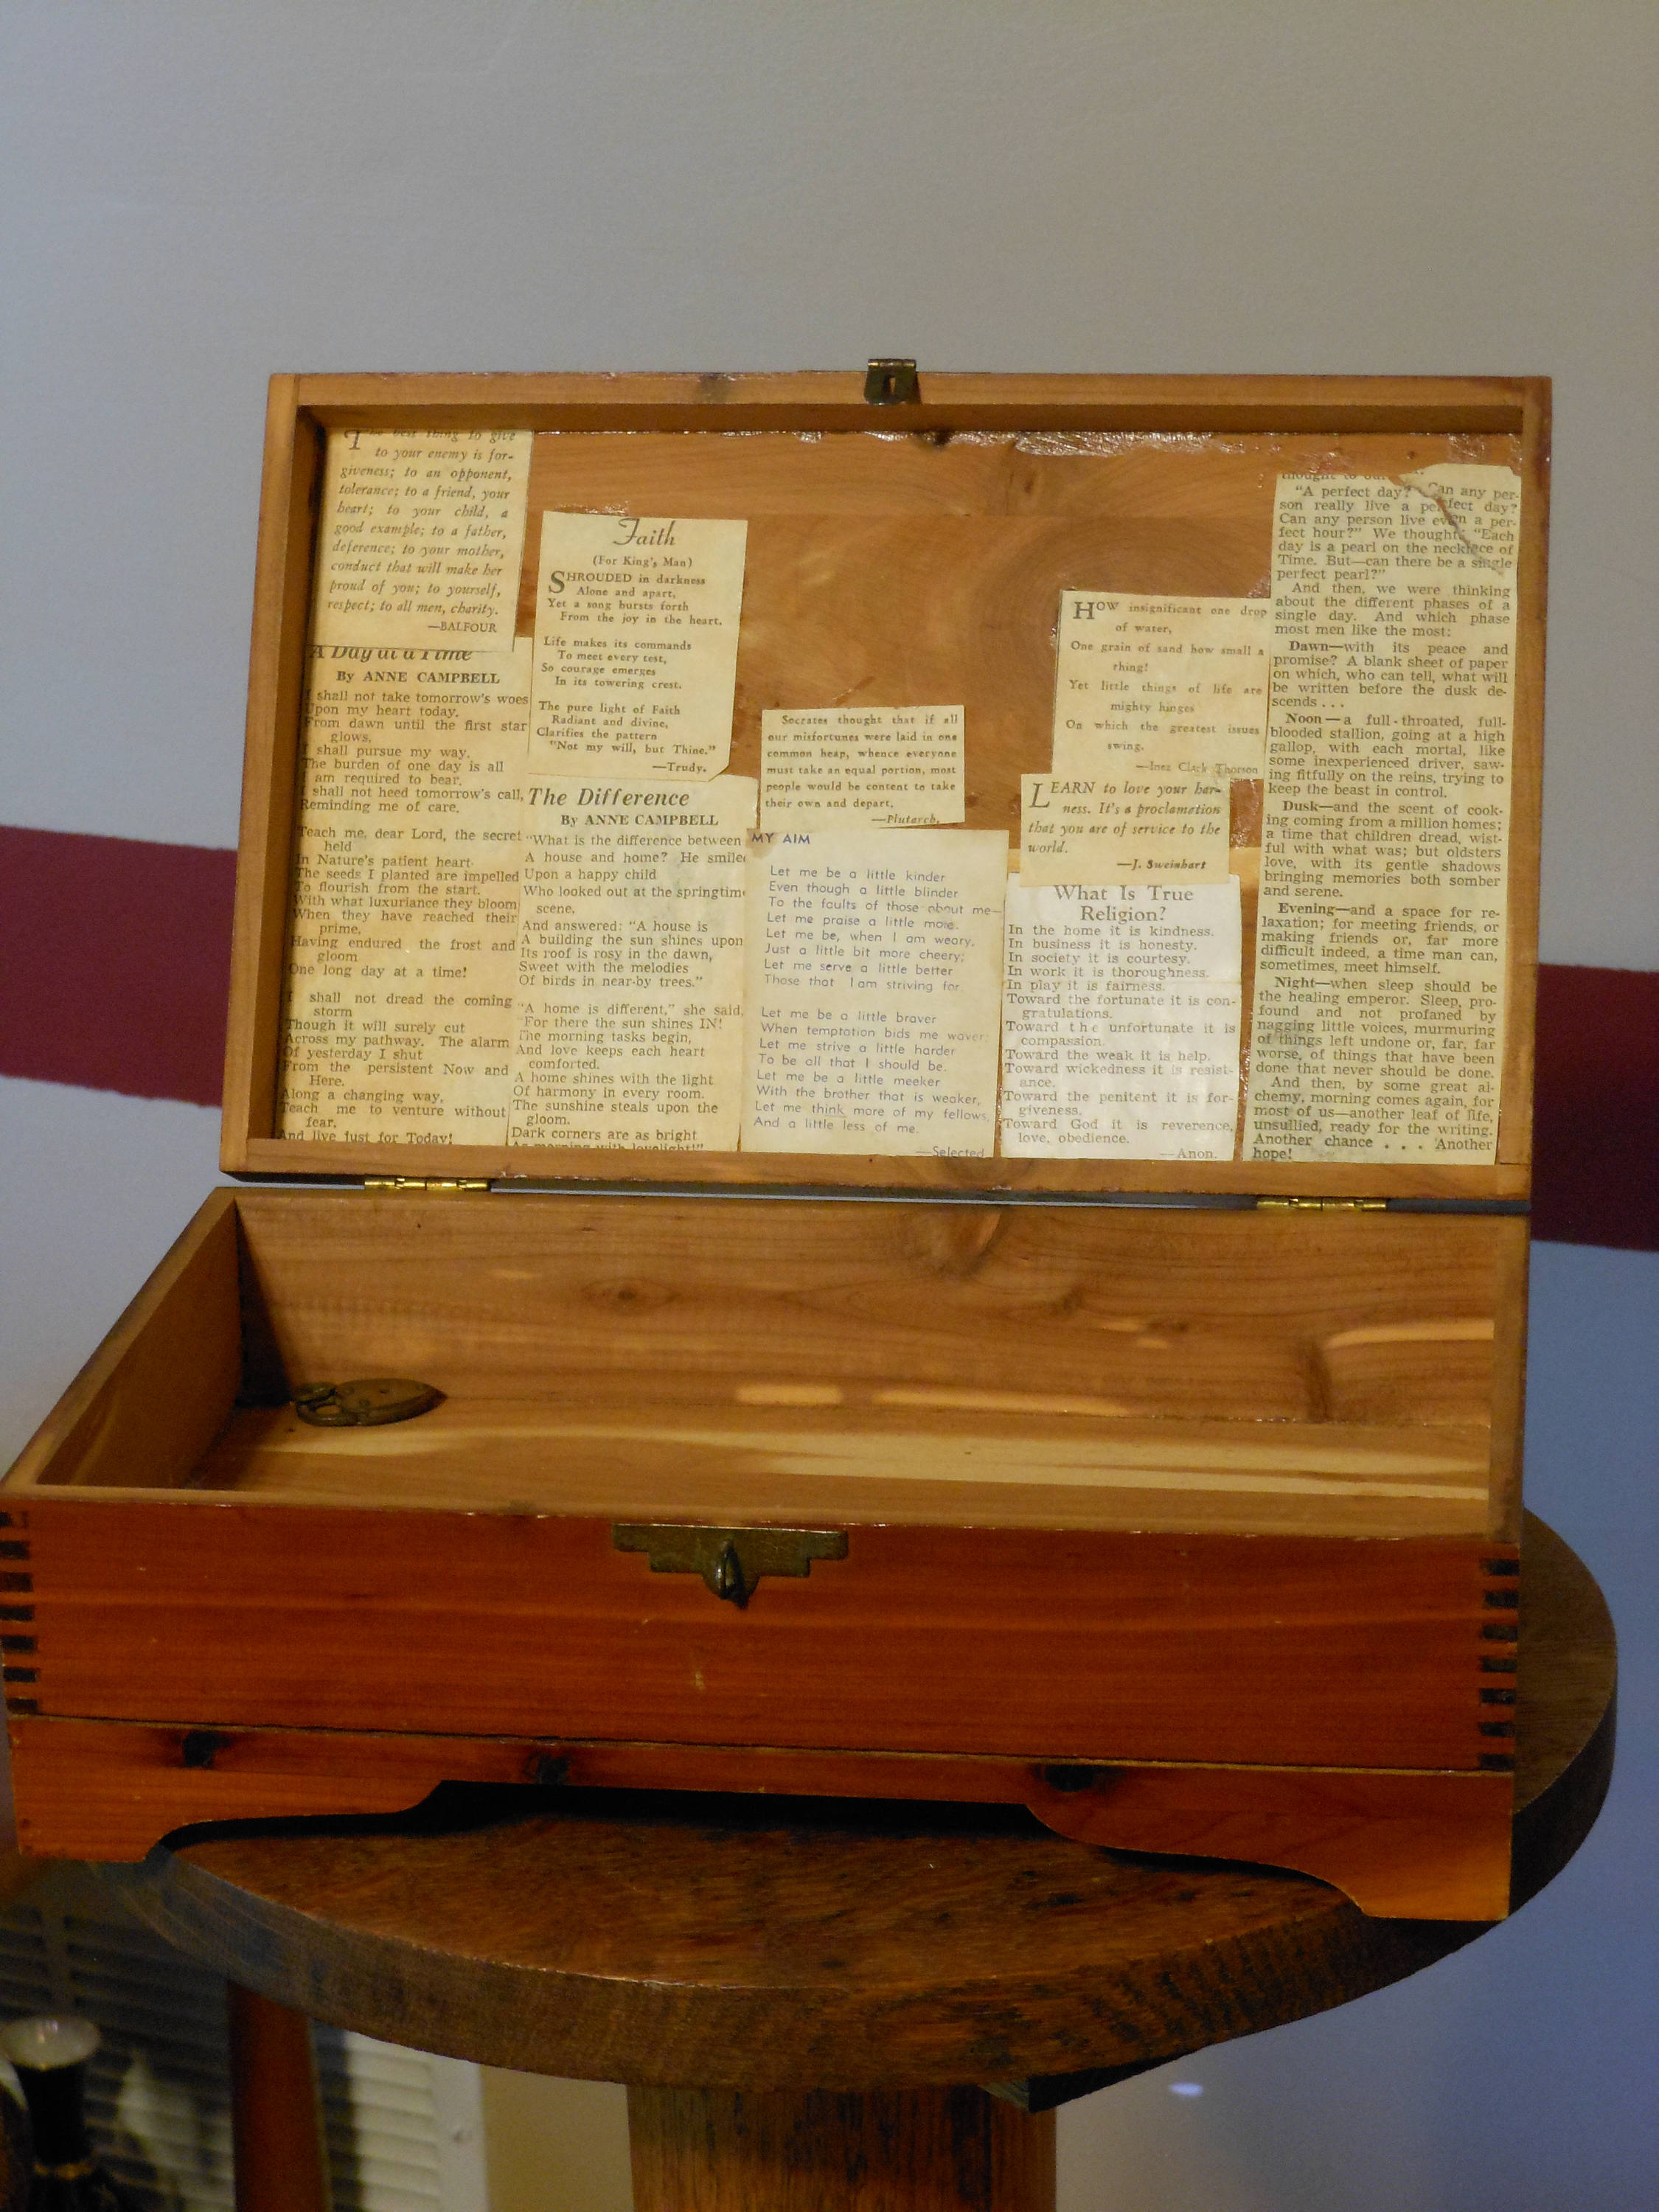 to your enemy is for-
giveness; to an opponent,
tolerance; to a friend, your
heart; to your child, a
good example; to a father,
deference; to your mother,
conduct that will make her
proud of you; to yourself,
respect; to all men, charity.
—BALFOUR
A Day at a Time
By ANNE CAMPBELL
I shall not take tomorrow's woes
Upon my heart today.
From dawn until the first star
glows,
I shall pursue my way.
The burden of one day is all
I am required to bear.
I shall not heed tomorrow's call,
Reminding me of care.
Teach me, dear Lord, the secret
held
In Nature's patient heart.
The seeds I planted are impelled
To flourish from the start.
With what luxuriance they bloom
When they have reached their
prime,
Having endured the frost and
gloom
One long day at a time!
I shall not dread the coming
storm
Though it will surely cut
Across my pathway. The alarm
Of yesterday I shut
From the persistent Now and
Here.
Along a changing way,
Teach me to venture without
fear,
And live just for Today!
Faith
(For King's Man)
SHROUDED in darkness
Alone and apart,
Yet a song bursts forth
From the joy in the heart.
Life makes its commands
To meet every test,
So courage emerges
In its towering crest.
The pure light of Faith
Radiant and divine,
Clarifies the pattern
"Not my will, but Thine."
—Trudy.
The Difference
By ANNE CAMPBELL
"What is the difference between
A house and home? He smile
Upon a happy child
Who looked out at the springtime
scene.
And answered: "A house is
A building the sun shines upon
Its roof is rosy in the dawn,
Sweet with the melodies
Of birds in near-by trees."
"A home is different," she said,
"For there the sun shines IN!
The morning tasks begin,
And love keeps each heart
comforted.
A home shines with the light
Of harmony in every room.
The sunshine steals upon the
gloom.
Dark corners are as bright
As morning with lovelight!"
Socrates thought that if all
our misfortunes were laid in one
common heap, whence everyone
must take an equal portion, most
people would be content to take
their own and depart.
—Plutarch.
MY AIM
Let me be a little kinder
Even though a little blinder
To the faults of those about me—
Let me praise a little more.
Let me be, when I am weary,
Just a little bit more cheery;
Let me serve a little better
Those that I am striving for.
Let me be a little braver
When temptation bids me waver;
Let me strive a little harder
To be all that I should be.
Let me be a little meeker
With the brother that is weaker,
Let me think more of my fellows,
And a little less of me.
—Selected
HOW insignificant one drop
of water,
One grain of sand how small a
thing!
Yet little things of life are
mighty hinges
On which the greatest issues
swing.
—Inez Clark Thorson
LEARN to love your har-
ness. It's a proclamation
that you are of service to the
world.
—J. Sweinhart
What Is True
Religion?
In the home it is kindness.
In business it is honesty.
In society it is courtesy.
In work it is thoroughness.
In play it is fairness.
Toward the fortunate it is con-
gratulations.
Toward the unfortunate it is
compassion.
Toward the weak it is help.
Toward wickedness it is resist-
ance.
Toward the penitent it is for-
giveness.
Toward God it is reverence,
love, obedience.
—Anon.
thought to our
"A perfect day? Can any per-
son really live a perfect day?
Can any person live even a per-
fect hour?" We thought: "Each
day is a pearl on the necklace of
Time. But—can there be a single
perfect pearl?"
And then, we were thinking
about the different phases of a
single day. And which phase
most men like the most:
Dawn—with its peace and
promise? A blank sheet of paper
on which, who can tell, what will
be written before the dusk de-
scends . . .
Noon—a full-throated, full-
blooded stallion, going at a high
gallop, with each mortal, like
some inexperienced driver, saw-
ing fitfully on the reins, trying to
keep the beast in control.
Dusk—and the scent of cook-
ing coming from a million homes;
a time that children dread, wist-
ful with what was; but oldsters
love, with its gentle shadows
bringing memories both somber
and serene.
Evening—and a space for re-
laxation; for meeting friends, or
making friends or, far more
difficult indeed, a time man can,
sometimes, meet himself.
Night—when sleep should be
the healing emperor. Sleep, pro-
found and not profaned by
nagging little voices, murmuring
of things left undone or, far, far
worse, of things that have been
done that never should be done.
And then, by some great al-
chemy, morning comes again, for
most of us—another leaf of life,
unsullied, ready for the writing.
Another chance . . . Another
hope!